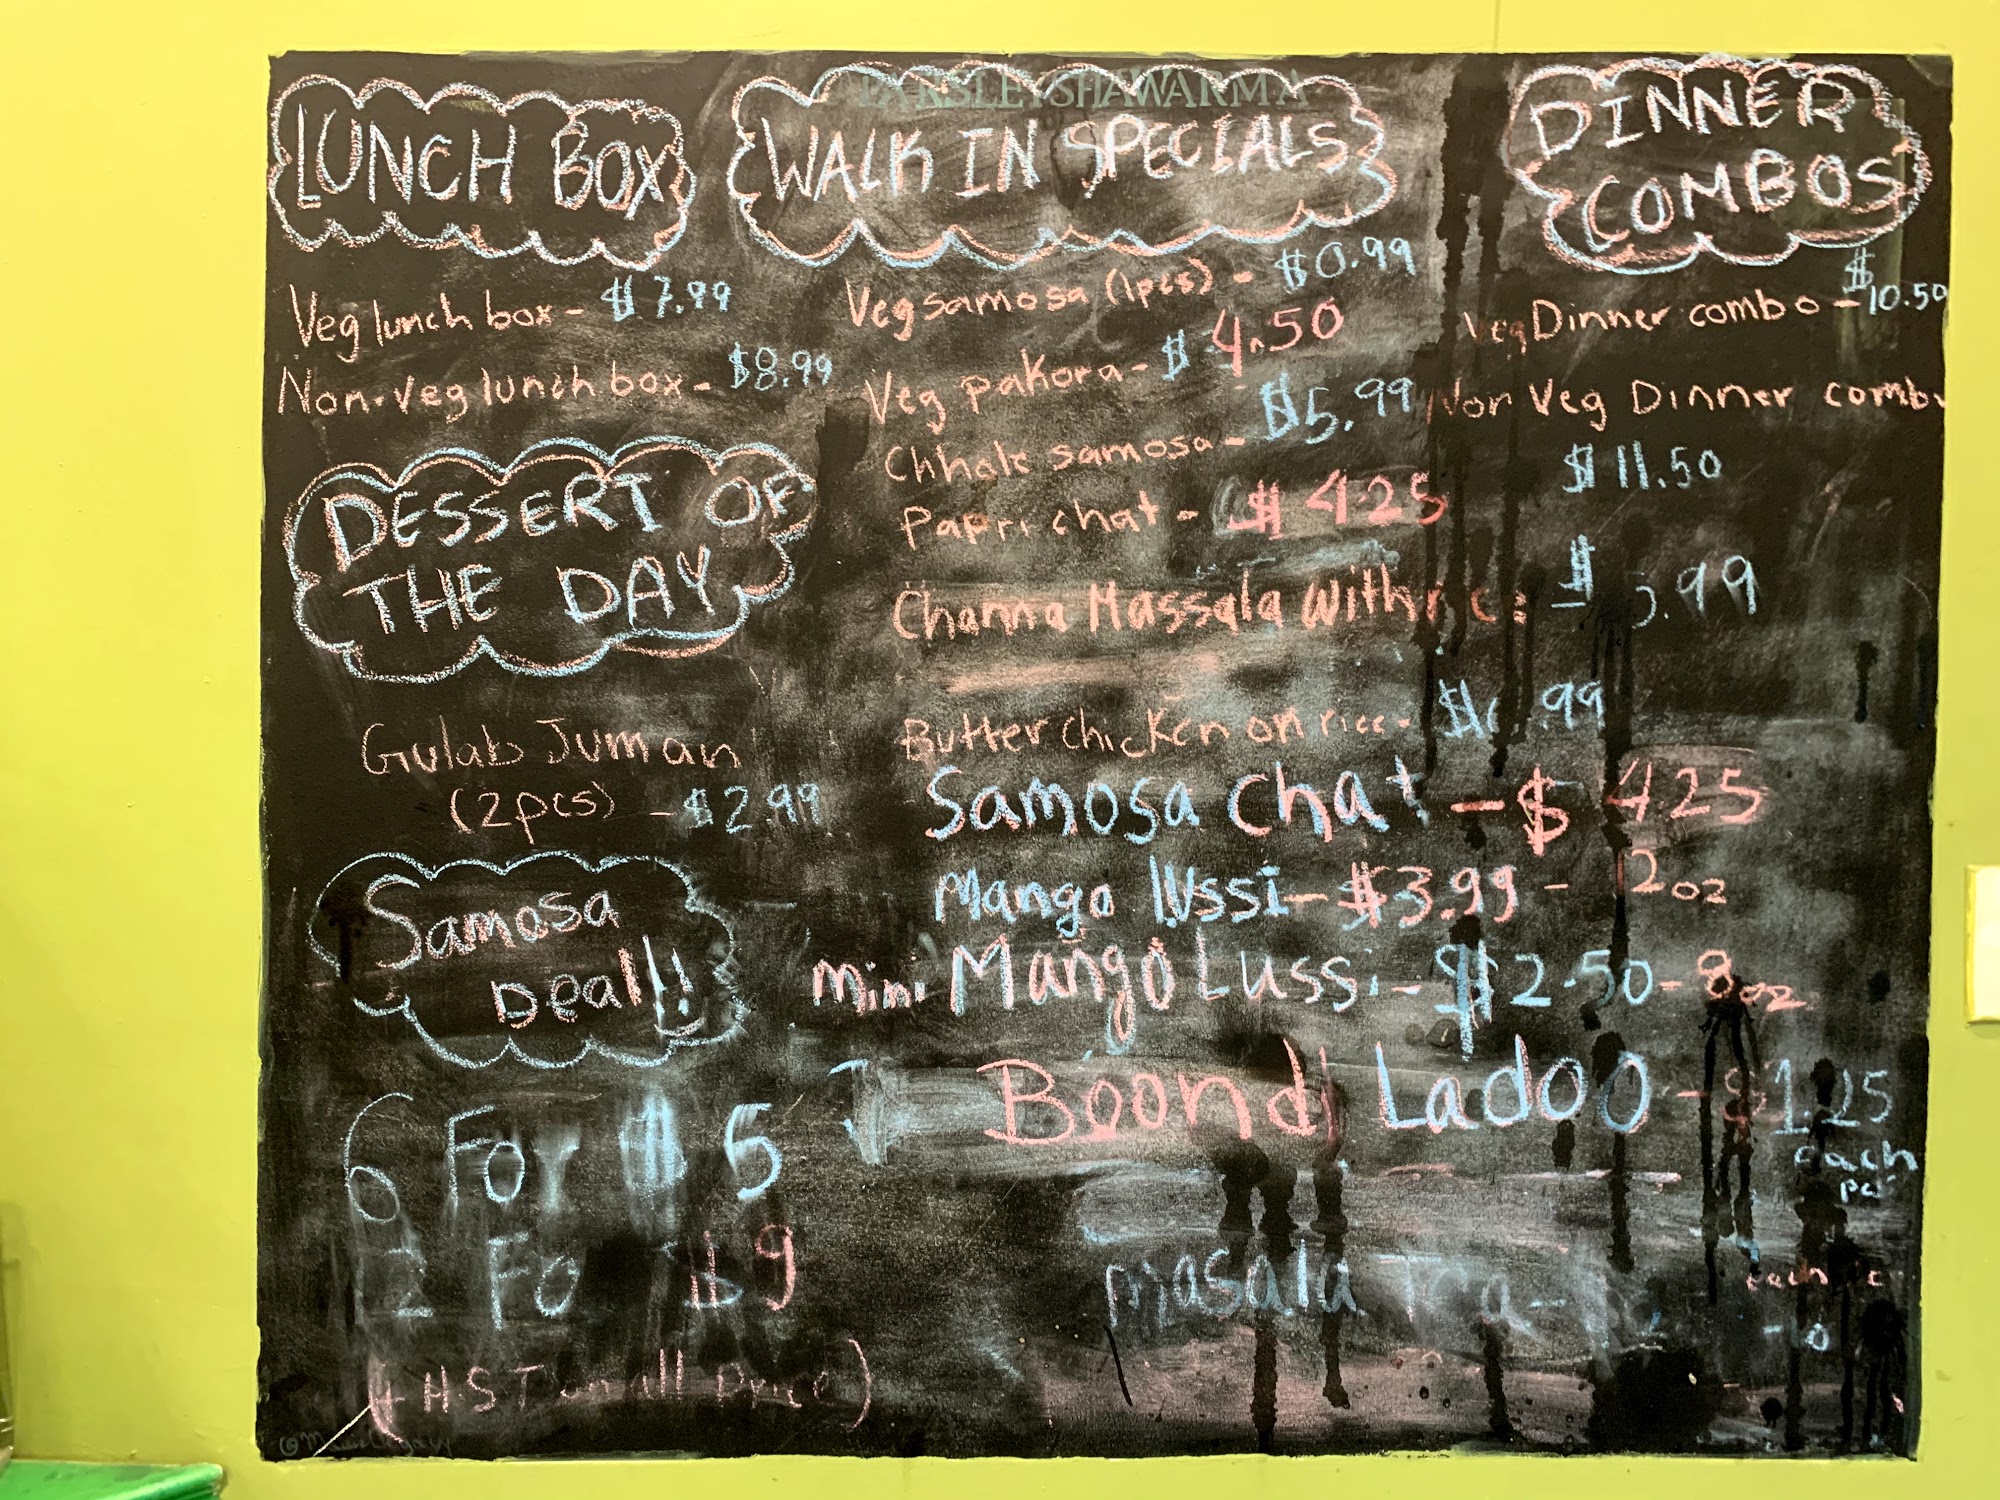 PARSLEY SHAWARMA
LUNCH BOX
Veg lunch box - $7.99
Non-veg lunch box - $8.99
DESSERT OF
THE DAY
Gulab Juman
(2pcs) - $2.99
Samosa
Deal!!
6 For $5
For $9
(+ HST on all price)
WALK IN SPECIALS
Veg samosa (1pcs) - $0.99
Veg pakora - $4.50
Chhole samosa - $5.99
Papri chat - $425
Channa Massala With rice $ .99
Butter chicken on rice - $ .99
Samosa Chat - $425
Mango lussi - $3.99 - 12oz
mini Mango Lussi - $2.50 - 8oz
Boondi Ladoo - $1.25
each
pc
masala Tea -
each
DINNER
COMBOS
Veg Dinner combo - $10.50
Non Veg Dinner combo
$11.50